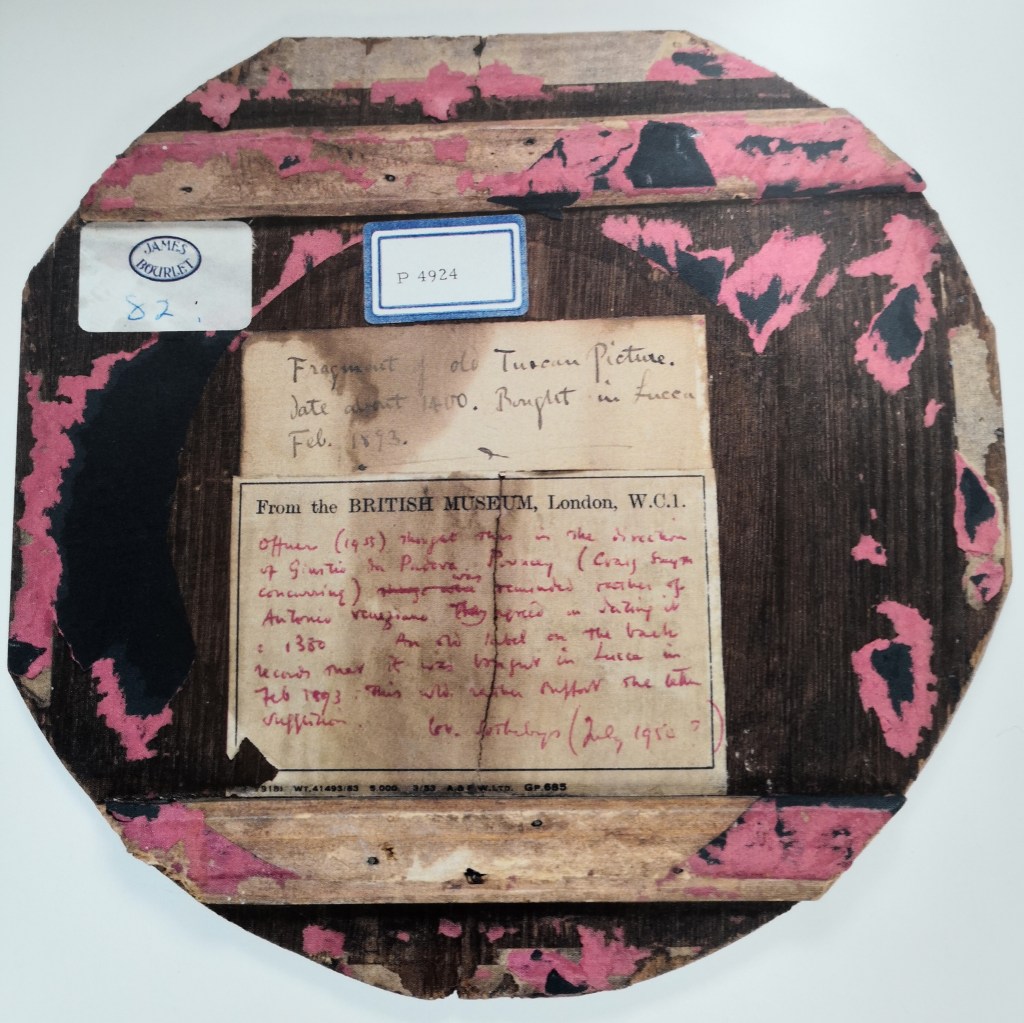 JAMES
BOURLET
82 :
P 4924
Fragment of old Tuscan Picture.
Date about 1400. Bought in Lucca
Feb. 1893.
From the BRITISH MUSEUM, London, W.C.1.
Offner (1955) thought this in the direction
of Giusto in Padova. Pouncey (Craig Smyth
concurring) was reminded rather of
Antonio Veneziano They agreed in dating it
c 1380 An old label on the back
records that it was bought in Lucca in
Feb 1893. This wld. rather support the latter
suggestion.
Sothebys (July 1950 ?)
WT.41493/83 5,000 3/53 GP.685